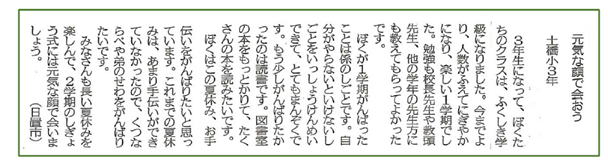 元気な顔で会おう
土橋小3年
3年生になって、ぼくた
ちのクラスは、ふくしき学
級になりました。今までよ
り、人数がふえてにぎやか
になり、楽しい1学期でし
た。勉強も校長先生や教頭
先生、他の学年の先生方に
も教えてもらってよかった
です。
ぼくが1学期がんばった
ことは係のしごとです。自
分がやらないといけないし
ごとをいっしょうけんめい
できて、とてもまんぞくで
す。もう少しがんばりたか
ったのは読書です。図書室
の本をもっとかりて、たく
さんの本を読みたいです。
ぼくはこの夏休み、お手
伝いをがんばりたいと思っ
ています。これまでの夏休
みは、あまり手伝いができ
ていなかったので、くつな
らべや弟のせわをがんばり
たいです。
みなさんも長い夏休みを
楽しんで、2学期のしぎょ
う式には元気な顔で会いま
しょう。
(日置市)